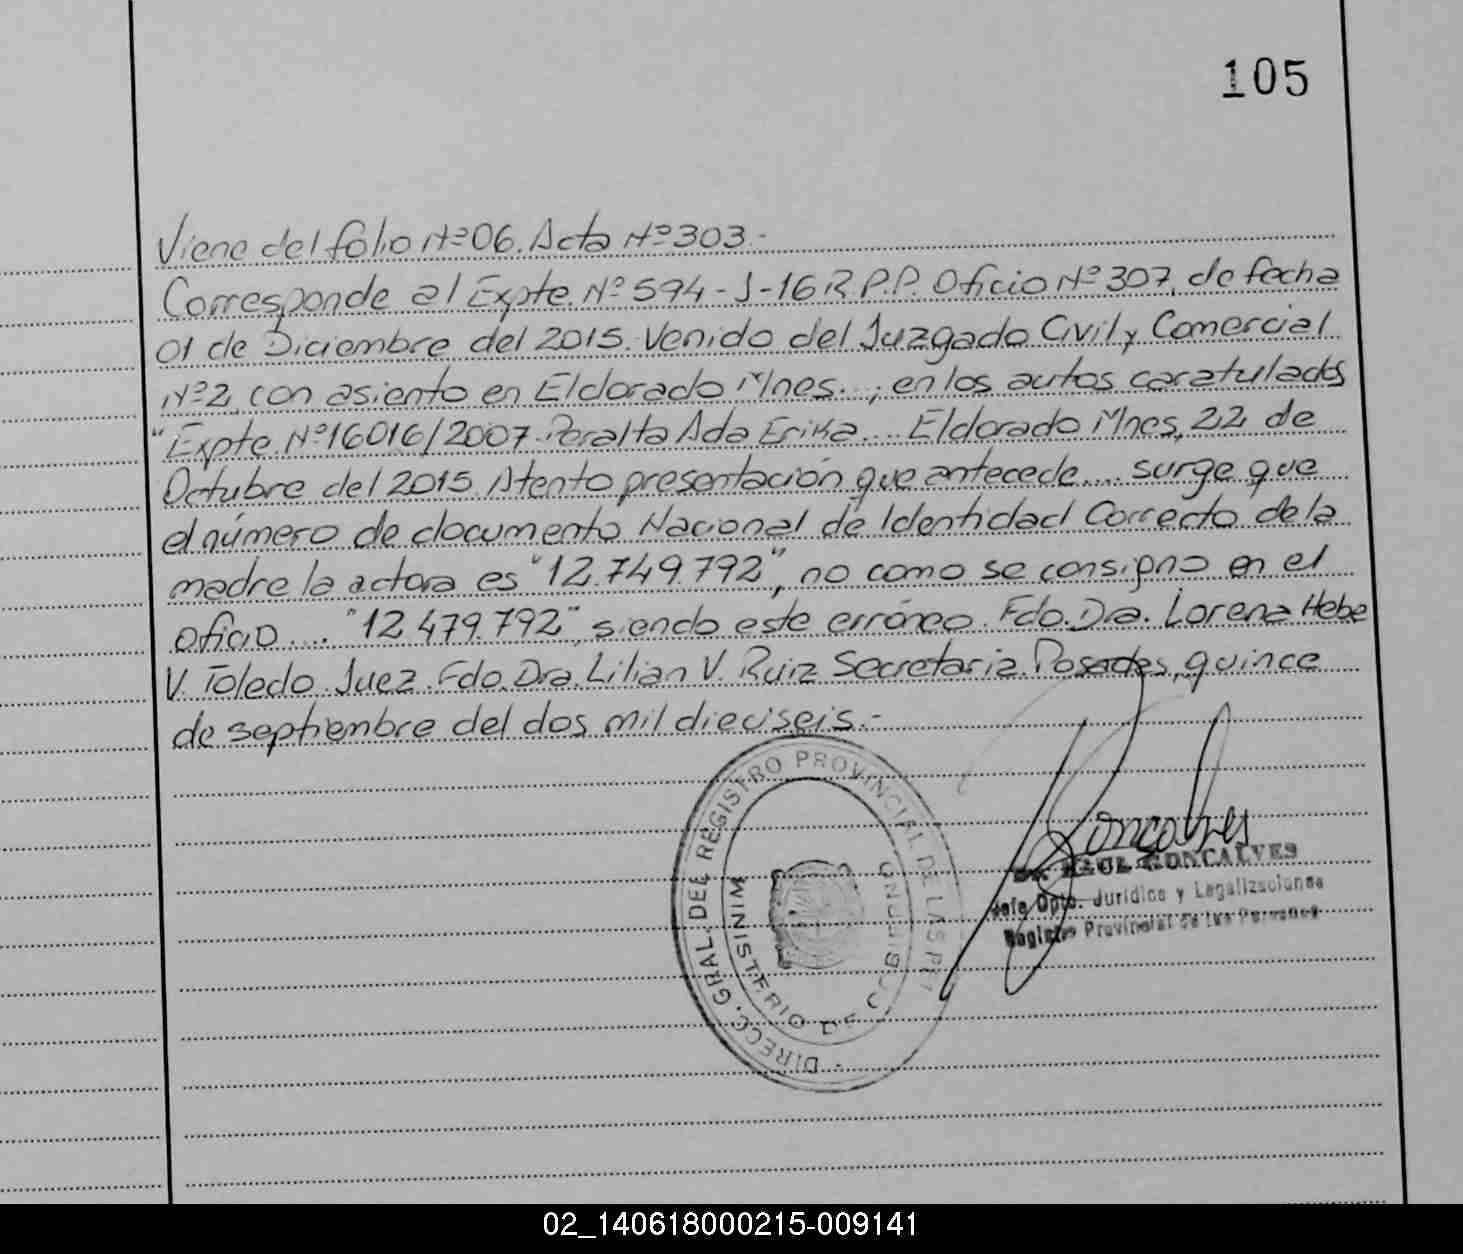 105
Viene del folio Nº06. Acta Nº303.-
Corresponde al Expte. Nº594-J-16 R.P.P. Oficio Nº307, de fecha
01 de Diciembre del 2015. Venido del Juzgado Civil y Comercial
Nº2, con asiento en Eldorado Mnes...; en los autos caratulados
"Expte. Nº16016/2007. Peralta Ada Erika.... Eldorado Mnes, 22 de
Octubre del 2015. Atento presentación que antecede.... surge que
el número de documento Nacional de Identidad Correcto de la
madre la actora es "12.749.792", no como se consigno en el
oficio.... "12.479.792", siendo este erróneo. Fdo. Dra. Lorena Hebe
V. Toledo. Juez. Fdo. Dra. Lilian V. Ruiz Secretaria. Posadas, quince
de septiembre del dos mil dieciseis.-
DIRECC. GRAL. DEL REGISTRO PROVINCIAL DE LAS
MINISTERIO DE GOBIERNO
Goncalves
Dr. RAUL GONCALVES
Jefe Dpto. Jurídico y Legalizaciones
Registro Provincial de las Personas
02_140618000215-009141